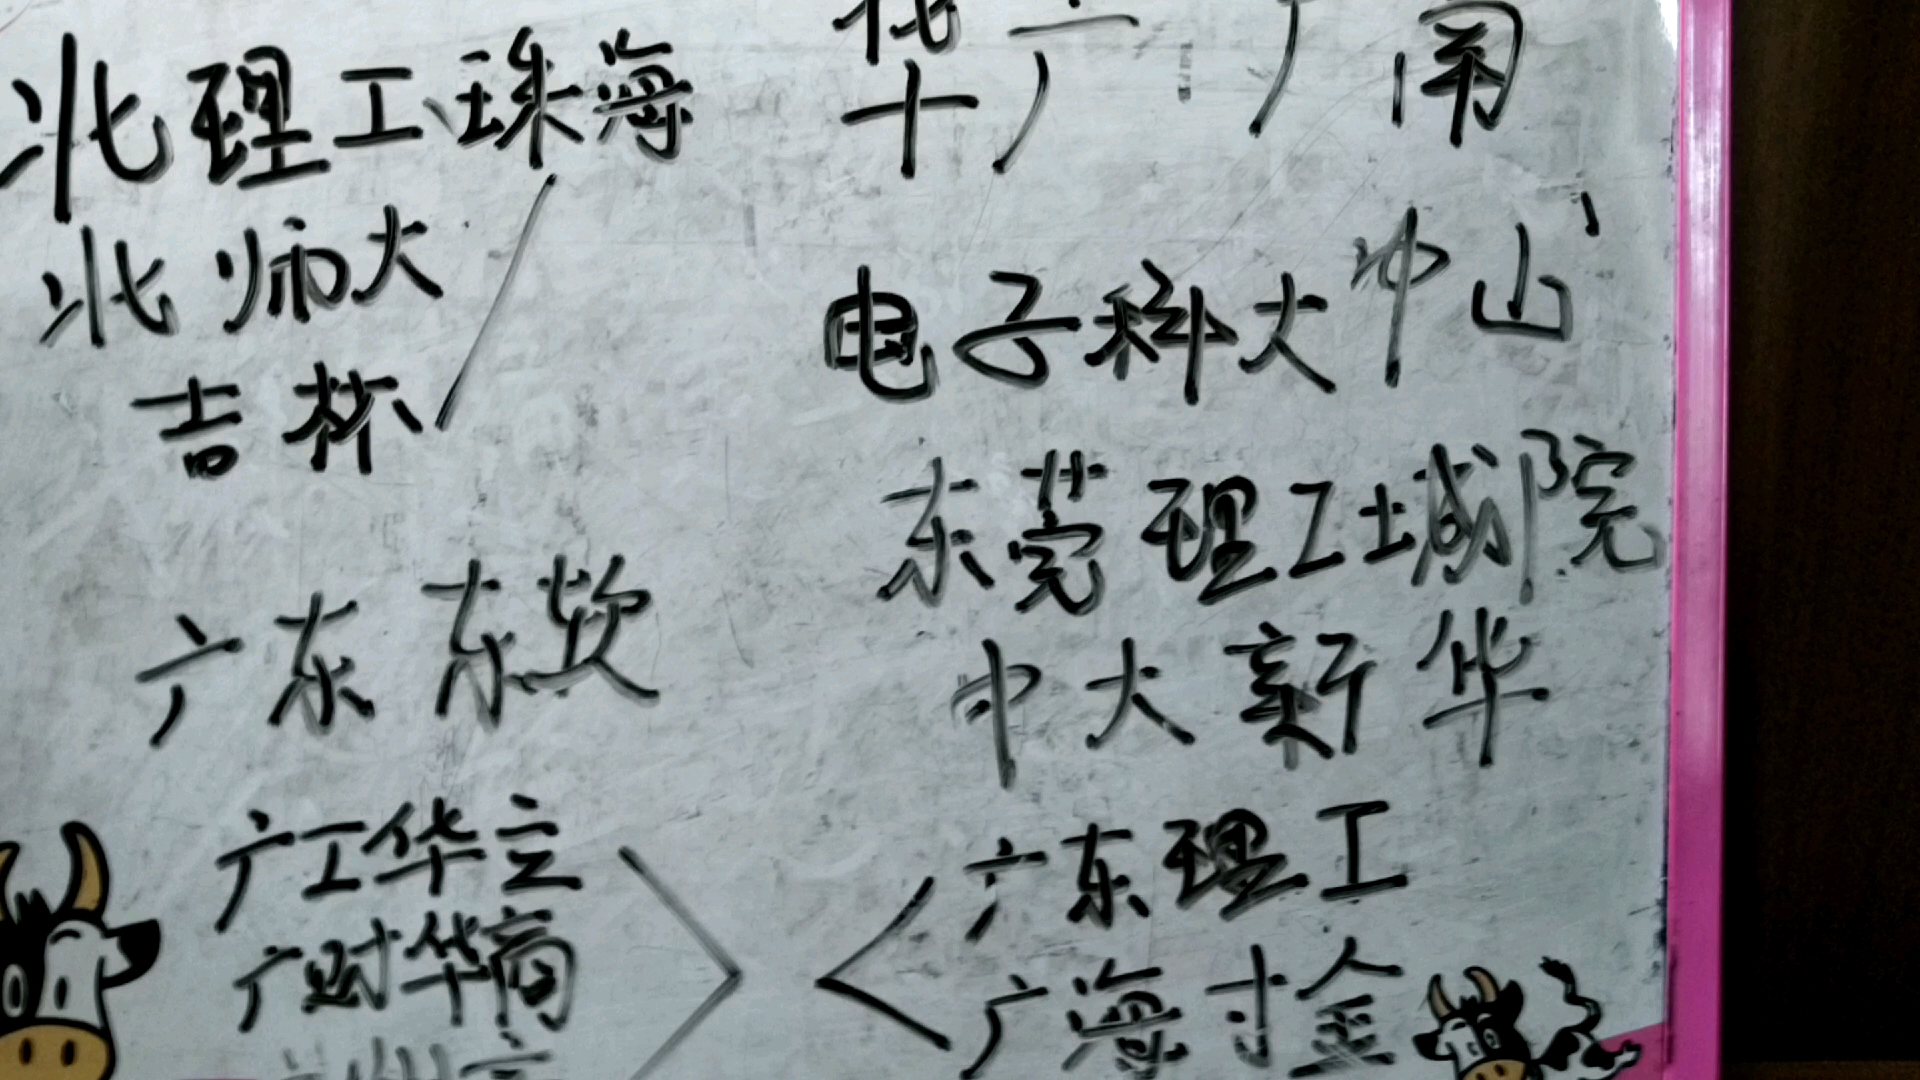 北理工珠海
北师大
吉林
广东东软
广工华立
广财华商
华广
电子科大中山
东莞理工城院
中大新华
广东理工
广海寸金